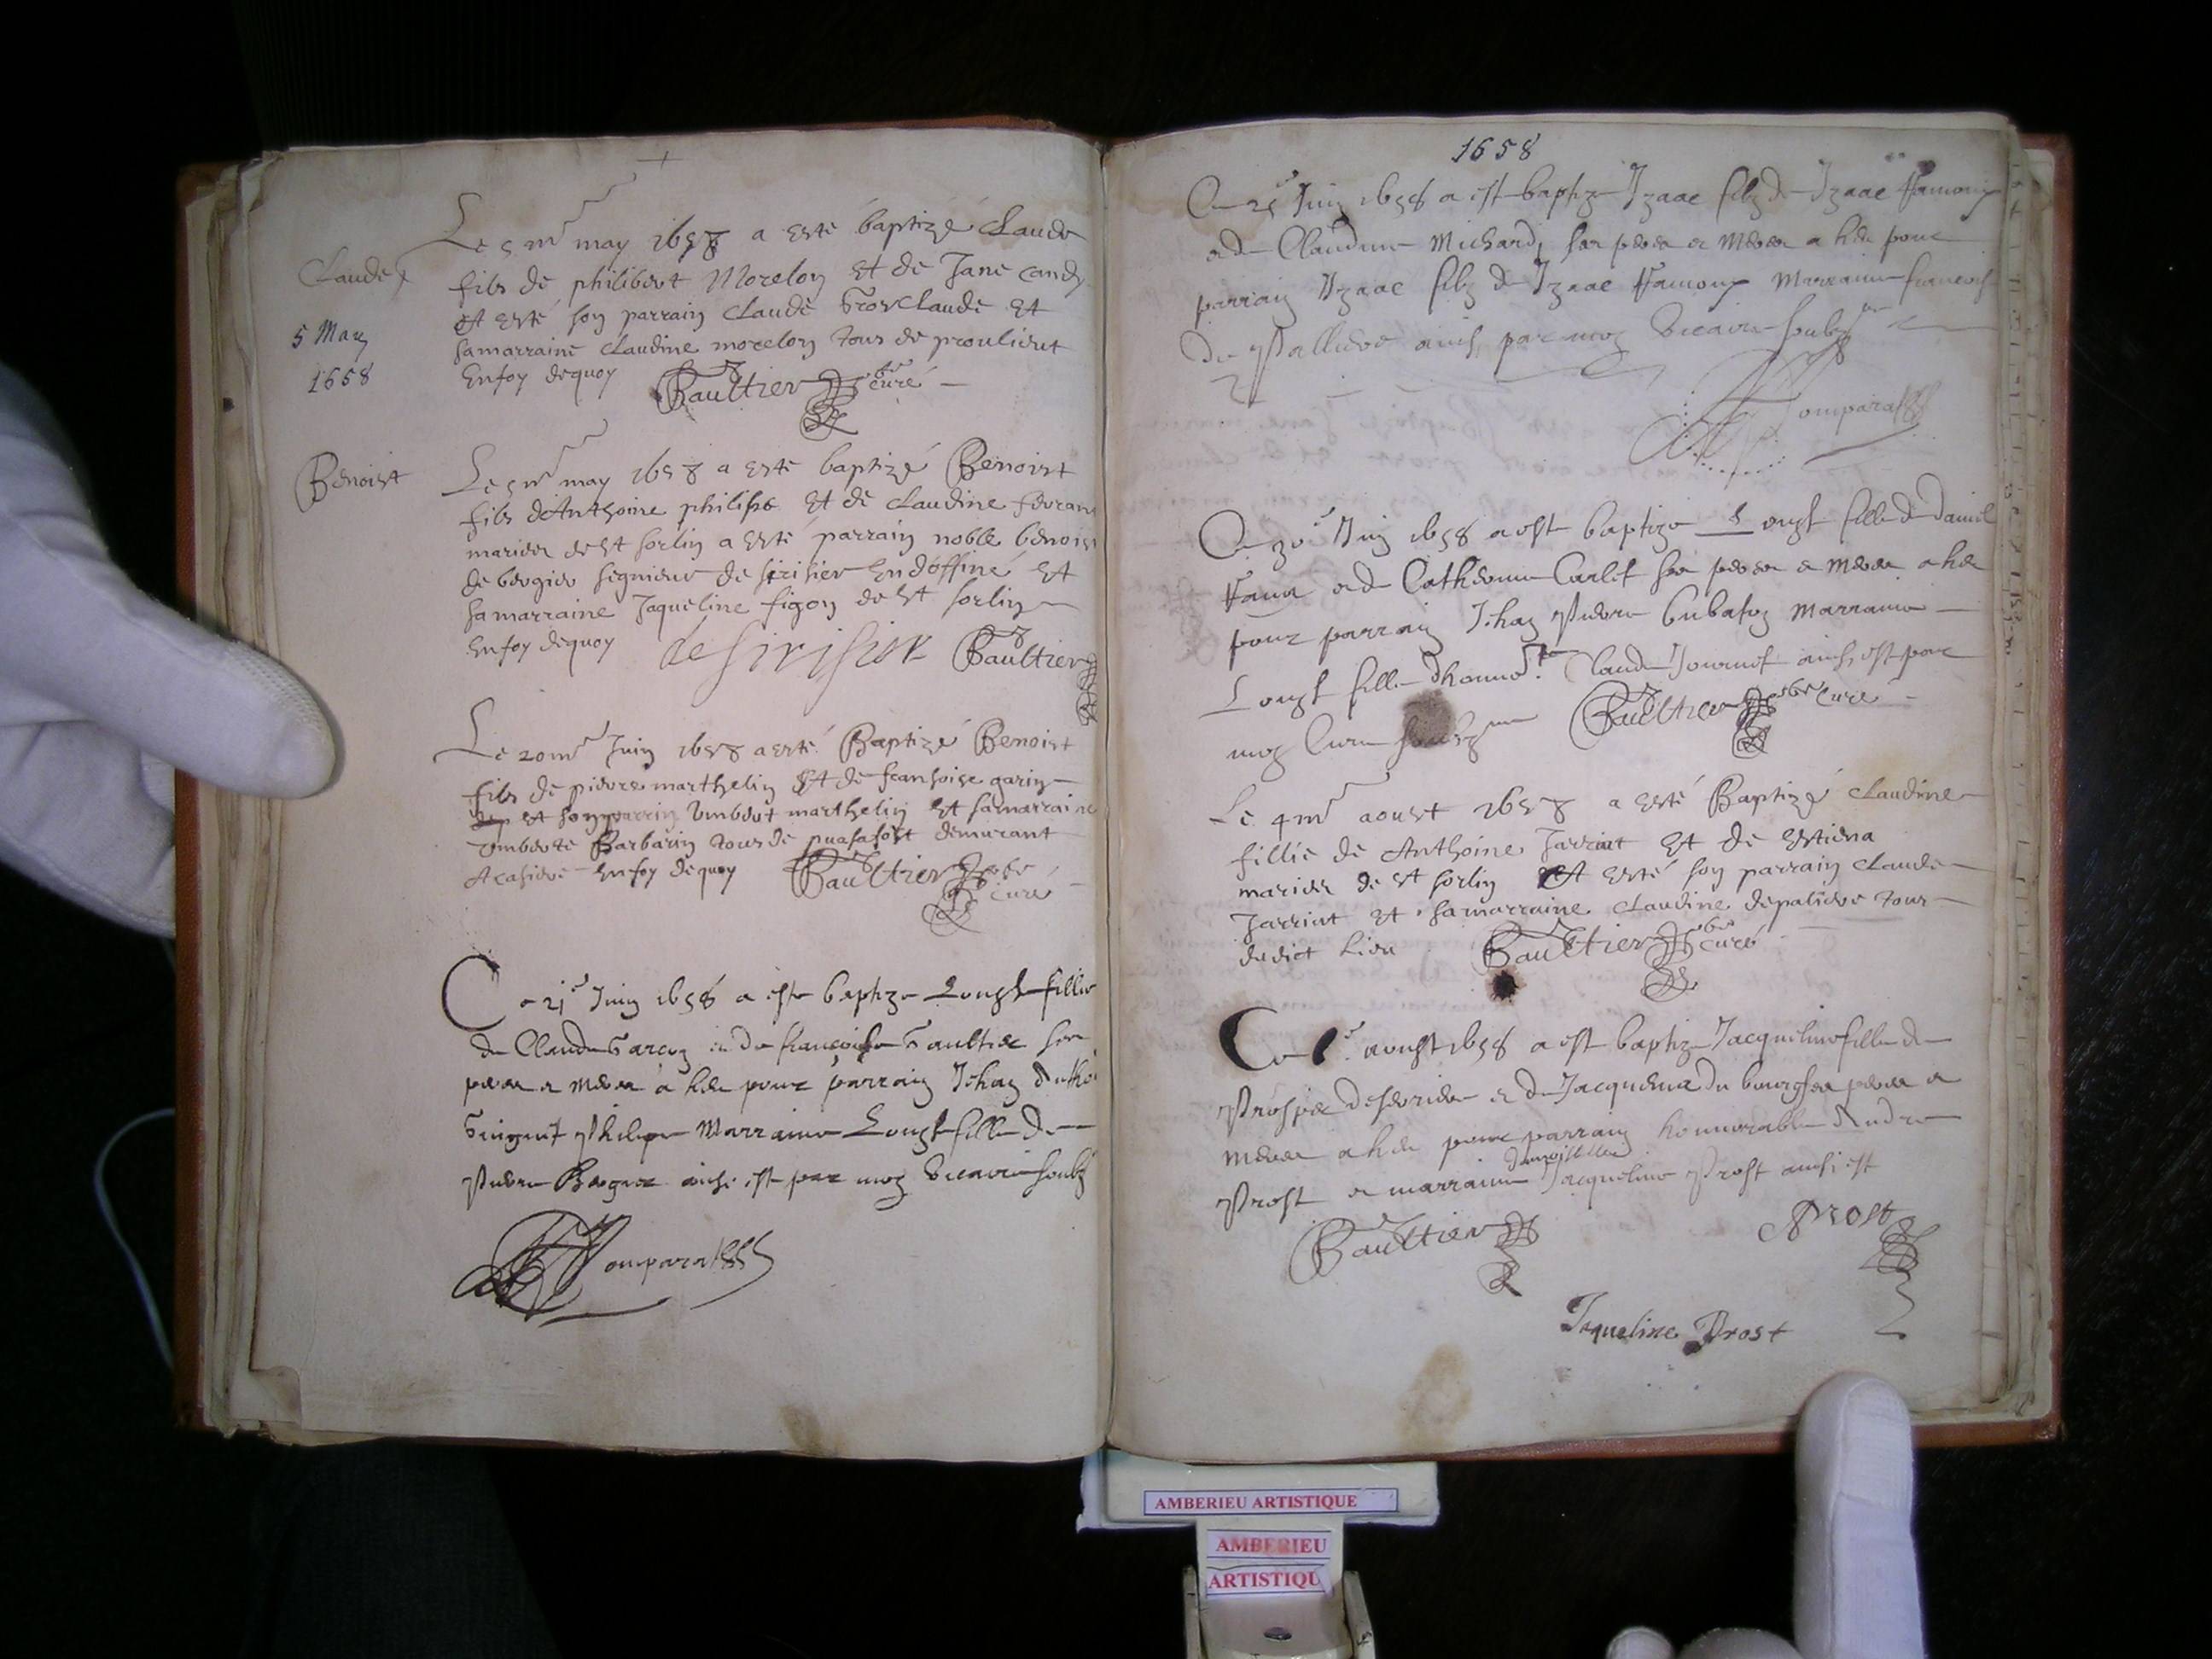 Claude
5 May
1658
Le 5 me may 1658 a esté baptizé Claude
fils de philibert Morelon et de Jane candy
et esté son parrain Claude Grosclaude et
sa marraine Claudine morelon tous de proulieut
En foy dequoy Gaultier pbre curé
Benoist
Le 5 me may 1658 a esté baptizé Benoist
fils d'Anthoine philippe et de Claudine
mariez de st sorlin a esté parrain noble benoist
de segnieur de sirisier en doffiné et
sa marraine Jaqueline figon de st sorlin
En foy dequoy de sirisier Gaultier
Le 20 me Juin 1658 a esté Baptizé Benoist
fils de pierre marthelin et de fransoise garin
et son parrin Umbert marthelin et sa marraine
Umberte Barbarin tous de demurant
En foy dequoy Gaultier pbre curé
Ce 21e Juin 1658 a este baptize Louyse fillie
de Claude Garcon et de francoise Gaultier ses
pere et mere a heu pour parrain Jehan
philippe Marraine Louyse fille de
pierre ainsi est par moy vicaire soubz
1658
Ce 25e Juin 1658 a est baptize Izaac filz de Izaac
et de Claudine Michard, ses pere et mere a heu pour
parrain Izaac filz de Izaac Marraine francoise
de Palliere ainsi, par moy vicaire soubz
Ce 30e Juin 1658 a est baptize Louyse fille de Daniel
et de Catherine Carlet ses pere et mere a heu
pour parrain Jehan Pierre Marraine
Louyse fille Claude Journet ainsi, est par
moy Cure Gaultier pbre curé
Le 4 me aoust 1658 a esté Baptizé Claudine
fillie de Anthoine Jarriat et de Estiena
mariez de st sorlin et esté son parrain Claude
Jarriat et sa marraine Claudine depaliere tous
dudict lieu Gaultier pbre curé
Ce aoust 1658 a est baptize Jacqueline fille de
Prosper et de Jacquema du bourg ses pere et
mere a heu pour parrain honnorable Andre
Prost et marraine damoiselle Jacqueline Prost ainsi est
Gaultier
Prost
Jaqueline Prost
AMBERIEU ARTISTIQUE
AMBERIEU
ARTISTIQU